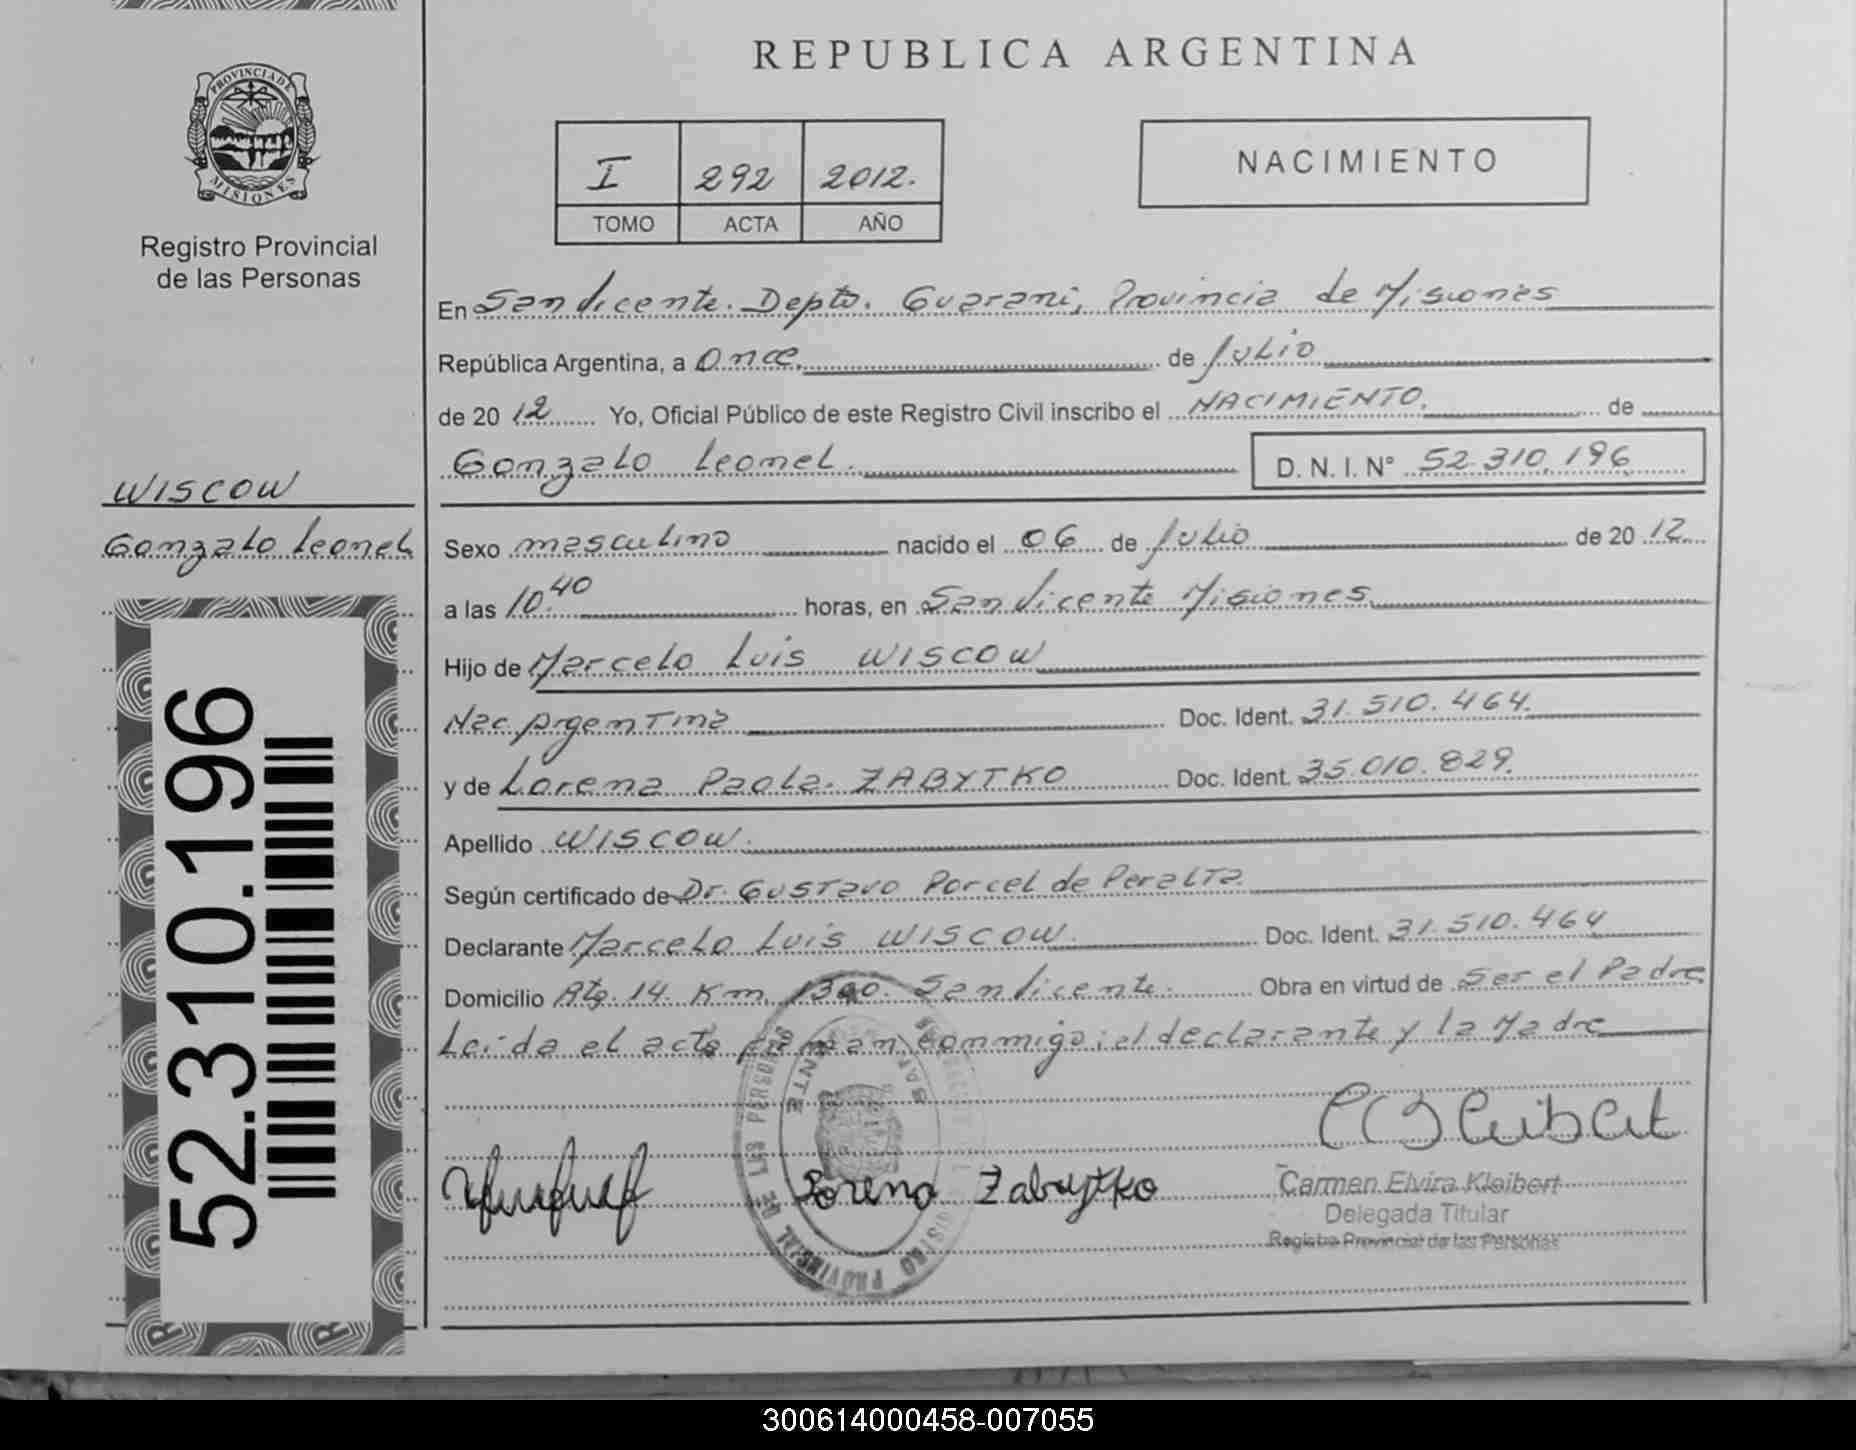 REPUBLICA ARGENTINA
PROVINCIA DE
MISIONES
Registro Provincial
de las Personas
I 292 2012.
TOMO ACTA AÑO
NACIMIENTO
En San Vicente. Depto. Guarani, Provincia de Misiones
República Argentina, a Once, de Julio
de 20 12 Yo, Oficial Público de este Registro Civil inscribo el NACIMIENTO. de
Gonzalo Leonel. D. N. I. N° 52.310.196
WISCOW
Gonzalo Leonel
Sexo masculino nacido el 06 de Julio de 20 12
a las 10.40 horas, en San Vicente Misiones
Hijo de Marcelo Luis WISCOW
Nac. Argentina Doc. Ident. 31.510.464.
y de Lorena Paola. ZABYTKO Doc. Ident. 35.010.829.
Apellido WISCOW.
Según certificado de Dr. Gustavo Porcel de Peralta
Declarante Marcelo Luis WISCOW. Doc. Ident. 31.510.464
Domicilio Km. San Vicente. Obra en virtud de Ser el Padre
Leída el acta firman conmigo: el declarante y la Madre
52.310.196
Lorena Zabytko
Carmen Elvira Kleibert
Delegada Titular
Registro Provincial de las Personas
REGISTRO PROVINCIAL DE LAS PERSONAS
300614000458-007055